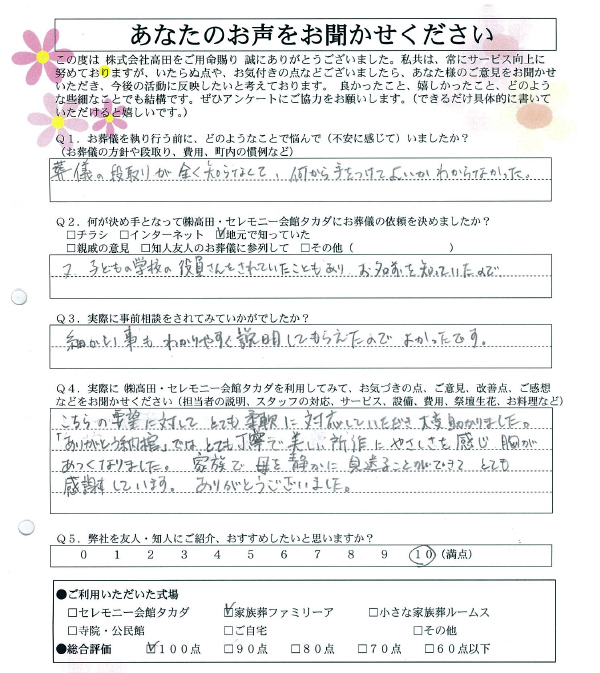 あなたのお声をお聞かせください
この度は 株式会社高田をご用命賜り 誠にありがとうございました。私共は、常にサービス向上に
努めておりますが、いたらぬ点や、お気付きの点などございましたら、あなた様のご意見をお聞かせ
いただき、今後の活動に反映したいと考えております。 良かったこと、嬉しかったこと、どのよう
な些細なことでも結構です。ぜひアンケートにご協力をお願いします。（できるだけ具体的に書いて
いただけると嬉しいです。）
Ｑ１．お葬儀を執り行う前に、どのようなことで悩んで（不安に感じて）いましたか？
（お葬儀の方針や段取り、費用、町内の慣例など）
葬儀の段取りが全く知らなくて、何から手をつけてよいかわからなかった。
Ｑ２．何が決め手となって㈱高田・セレモニー会館タカダにお葬儀の依頼を決めましたか？
□チラシ □インターネット ☑地元で知っていた
□親戚の意見 □知人友人のお葬儀に参列して □その他（ ）
子どもの学校の役員さんをされていたこともあり お名前を知っていたので
Ｑ３．実際に事前相談をされてみていかがでしたか？
細かい事もわかりやすく説明してもらえたのでよかったです。
Ｑ４．実際に ㈱高田・セレモニー会館タカダを利用してみて、お気づきの点、ご意見、改善点、ご感想
などをお聞かせください（担当者の説明、スタッフの対応、サービス、設備、費用、祭壇生花、お料理など）
こちらの要望に対して とても柔軟に対応していただき 大変助かりました。
「ありがとう では、とても丁寧で美しい所作に やさしさを感じ 胸が
あつくなりました。 家族で 母を静かに 見送ることができて とても
感謝しています。 ありがとうございました。
Ｑ５．弊社を友人・知人にご紹介、おすすめしたいと思いますか？
０ １ ２ ３ ４ ５ ６ ７ ８ ９ １０（満点）
●ご利用いただいた式場
□セレモニー会館タカダ ☑家族葬ファミリーア □小さな家族葬ルームス
□寺院・公民館 □ご自宅 □その他
●総合評価 ☑１００点 □９０点 □８０点 □７０点 □６０点以下